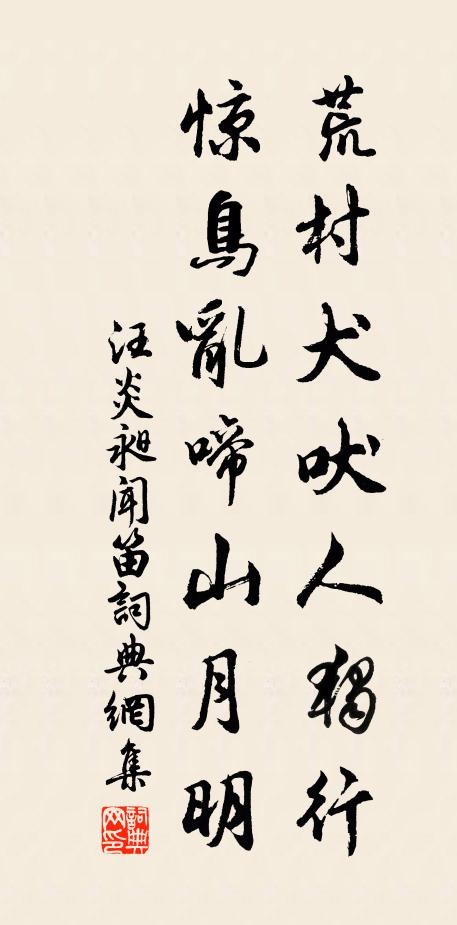 荒村犬吠人獨行
惊鳥亂啼山月明
汪炎昶闻笛詞典網集
詞典网印